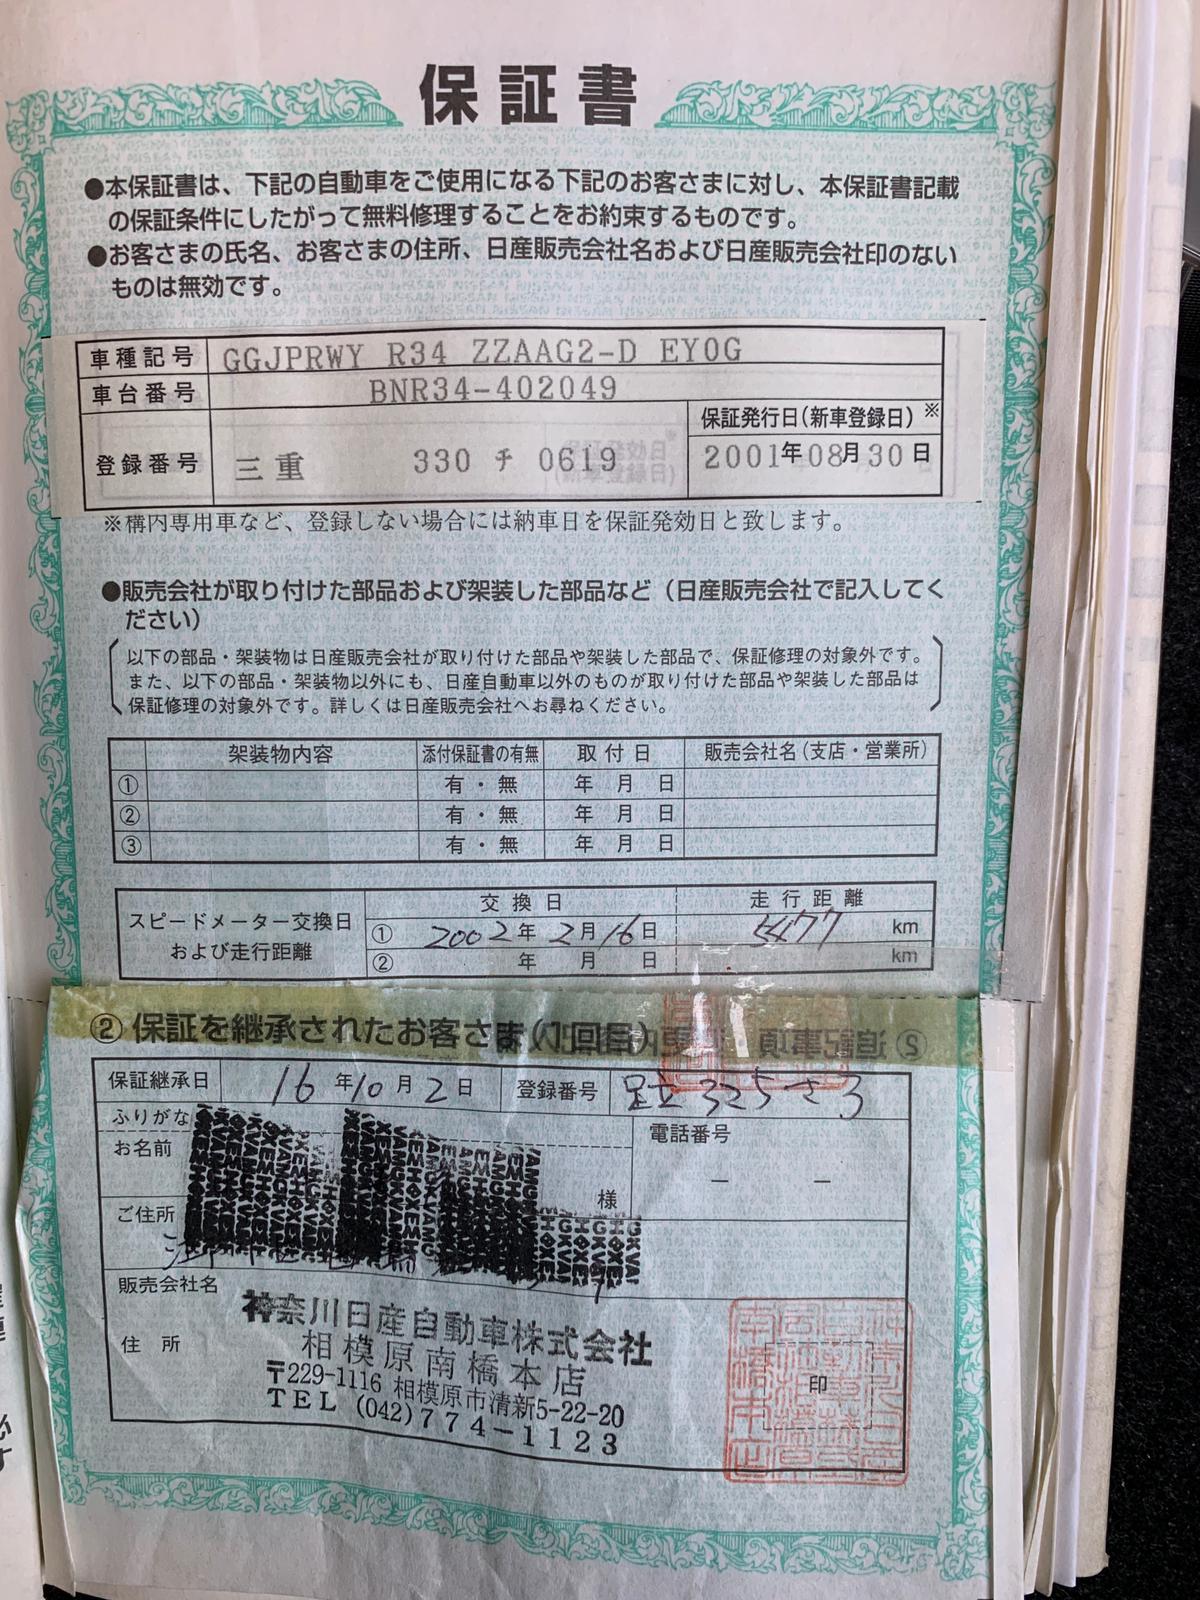 保証書
●本保証書は、下記の自動車をご使用になる下記のお客さまに対し、本保証書記載
の保証条件にしたがって無料修理することをお約束するものです。
●お客さまの氏名、お客さまの住所、日産販売会社名および日産販売会社印のない
ものは無効です。
車種記号 GGJPRWY R34 ZZAAG2-D EY0G
車台番号 BNR34-402049
保証発行日(新車登録日)※
登録番号 三重 330 チ 0619 2001年08月30日
※構内専用車など、登録しない場合には納車日を保証発効日と致します。
●販売会社が取り付けた部品および架装した部品など(日産販売会社で記入してく
ださい)
以下の部品・架装物は日産販売会社が取り付けた部品や架装した部品で、保証修理の対象外です。
また、以下の部品・架装物以外にも、日産自動車以外のものが取り付けた部品や架装した部品は
保証修理の対象外です。詳しくは日産販売会社へお尋ねください。
架装物内容 添付保証書の有無 取付日 販売会社名(支店・営業所)
① 有・無 年 月 日
② 有・無 年 月 日
③ 有・無 年 月 日
交換日 走行距離
スピードメーター交換日
および走行距離
① 2002年 2月 16日 5477 km
② 年 月 日 km
② 保証を継承されたお客さま(1回目)
保証継承日 16年10月2日 登録番号 足立 325 さ 3
ふりがな
お名前 様
電話番号 — —
ご住所
販売会社名
住所
神奈川日産自動車株式会社
相模原南橋本店
〒229-1116 相模原市清新5-22-20
TEL (042)774-1123
印